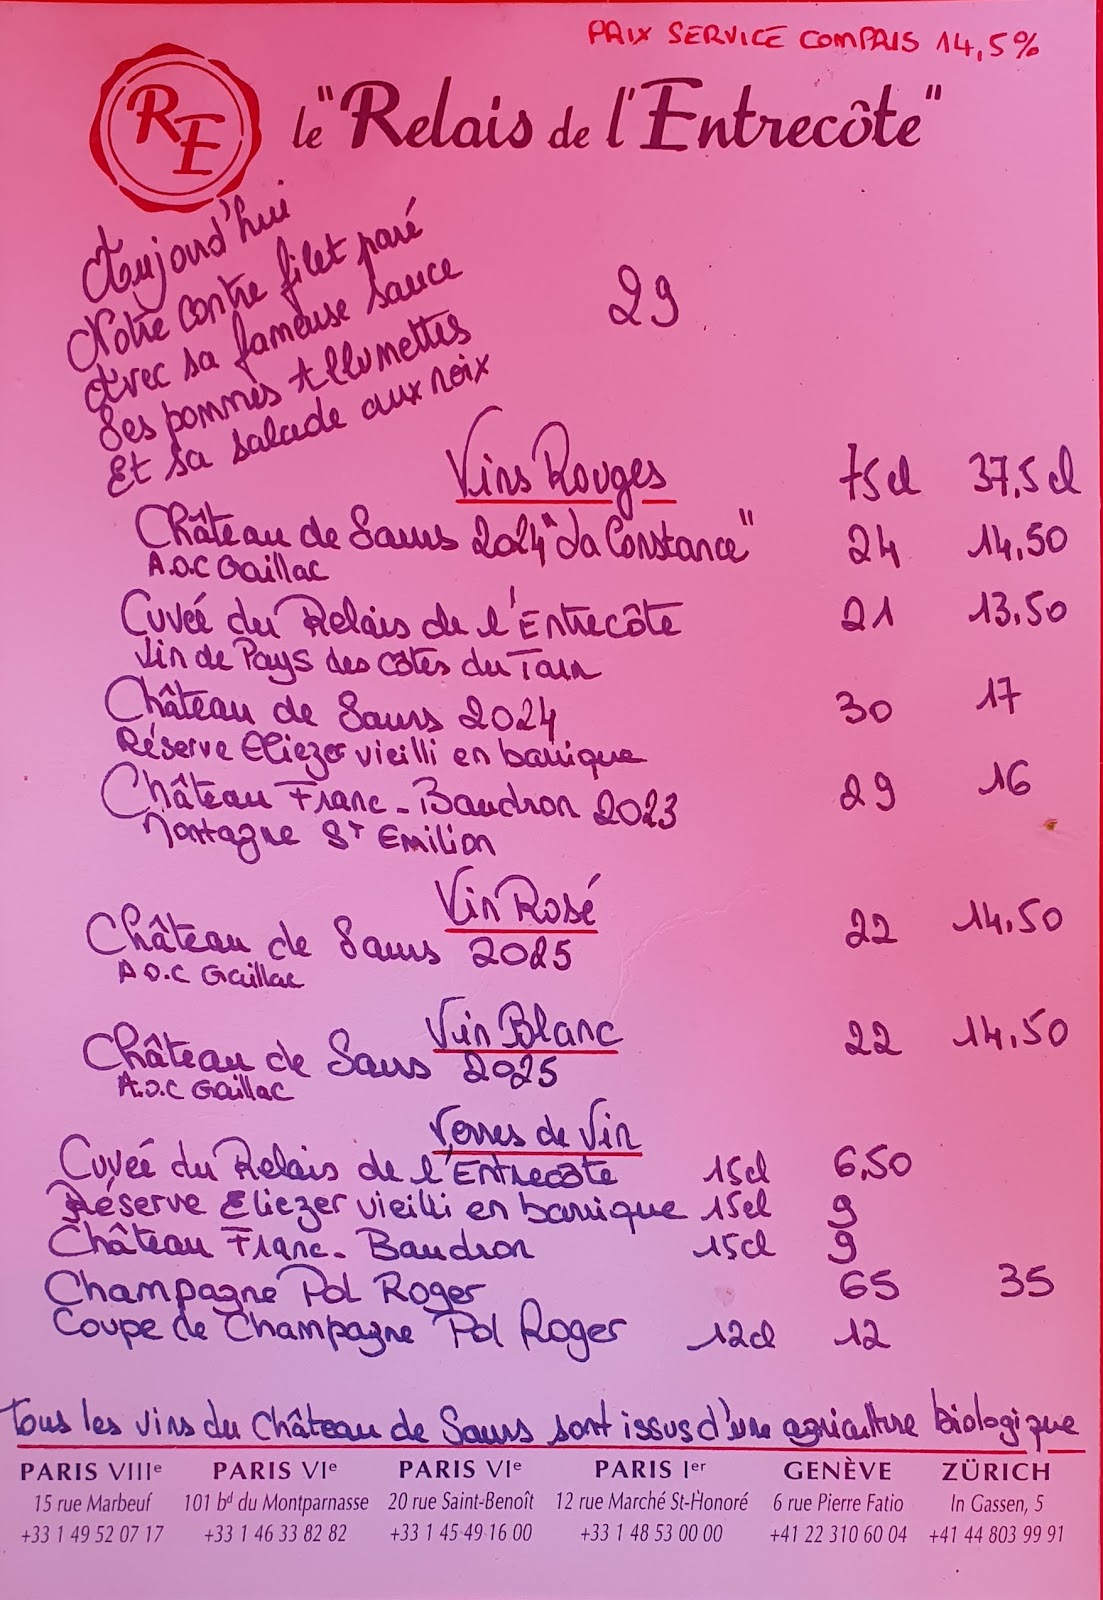 PRIX SERVICE COMPRIS 14,5%
RE
le "Relais de l'Entrecôte"
Aujourd'hui
Notre contre filet paré
Avec sa fameuse sauce
Ses pommes Allumettes
Et sa salade aux noix
29
Vins Rouges 75cl 37,5cl
Château de Saurs 2024 "La Constance" 24 14,50
A.O.C Gaillac
Cuveé du Relais de l'Entrecôte 21 13,50
Vin de Pays des côtes du Tarn
Château de Saurs 2024 30 17
Réserve Eliezer vieilli en barrique
Château Franc-Baudron 2023 29 16
Montagne St Emilion
Vin Rosé
Château de Saurs 2025 22 14,50
A.O.C Gaillac
Vin Blanc
Château de Saurs 2025 22 14,50
A.O.C Gaillac
Verres de Vin
Cuveé du Relais de l'Entrecote 15cl 6,50
Réserve Eliezer vieilli en barrique 15cl 9
Château Franc-Baudron 15cl 9
Champagne Pol Roger 65 35
Coupe de Champagne Pol Roger 12cl 12
Tous les vins du Château de Saurs sont issus d'une agriculture biologique
PARIS VIIIe PARIS VIe PARIS VIe PARIS Ier GENÈVE ZÜRICH
15 rue Marbeuf 101 bd du Montparnasse 20 rue Saint-Benoît 12 rue Marché St-Honoré 6 rue Pierre Fatio In Gassen, 5
+33 1 49 52 07 17 +33 1 46 33 82 82 +33 1 45 49 16 00 +33 1 48 53 00 00 +41 22 310 60 04 +41 44 803 99 91